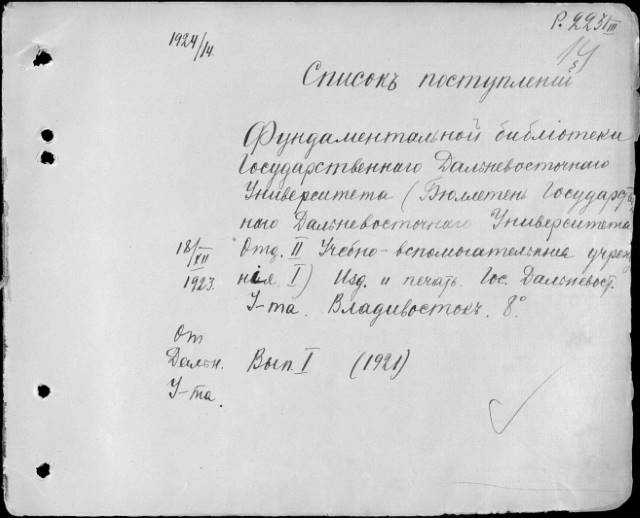 Р. 2231 III
14
1924/14.
Списокъ поступленій
Фундаментальной библіотеки
Государственнаго Дальневосточнаго
Университета (Бюллетень Государст-
наго Дальневосточнаго Университета
18/XII 1923.
Отд. II Учебно-вспомогательныя учреж
нія. I) Изд. и печать Гос. Дальневост.
У-та. Владивостокъ. 8°.
От
Дальн.
У-та.
Вып. I (1921)